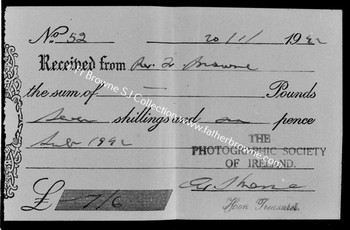 No 52 20/1/ 1942
Received from Rev. Fr Browne
the sum of — Pounds
Seven shillings and pence
Sub 1942
THE
PHOTOGRAPHIC SOCIETY
OF IRELAND.
£ 7/6
Hon Treasurer
Fr Browne S.J Collection
www.fatherbrowne.com